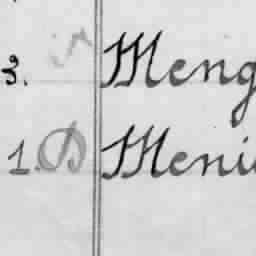 3. Meng
1. Meni